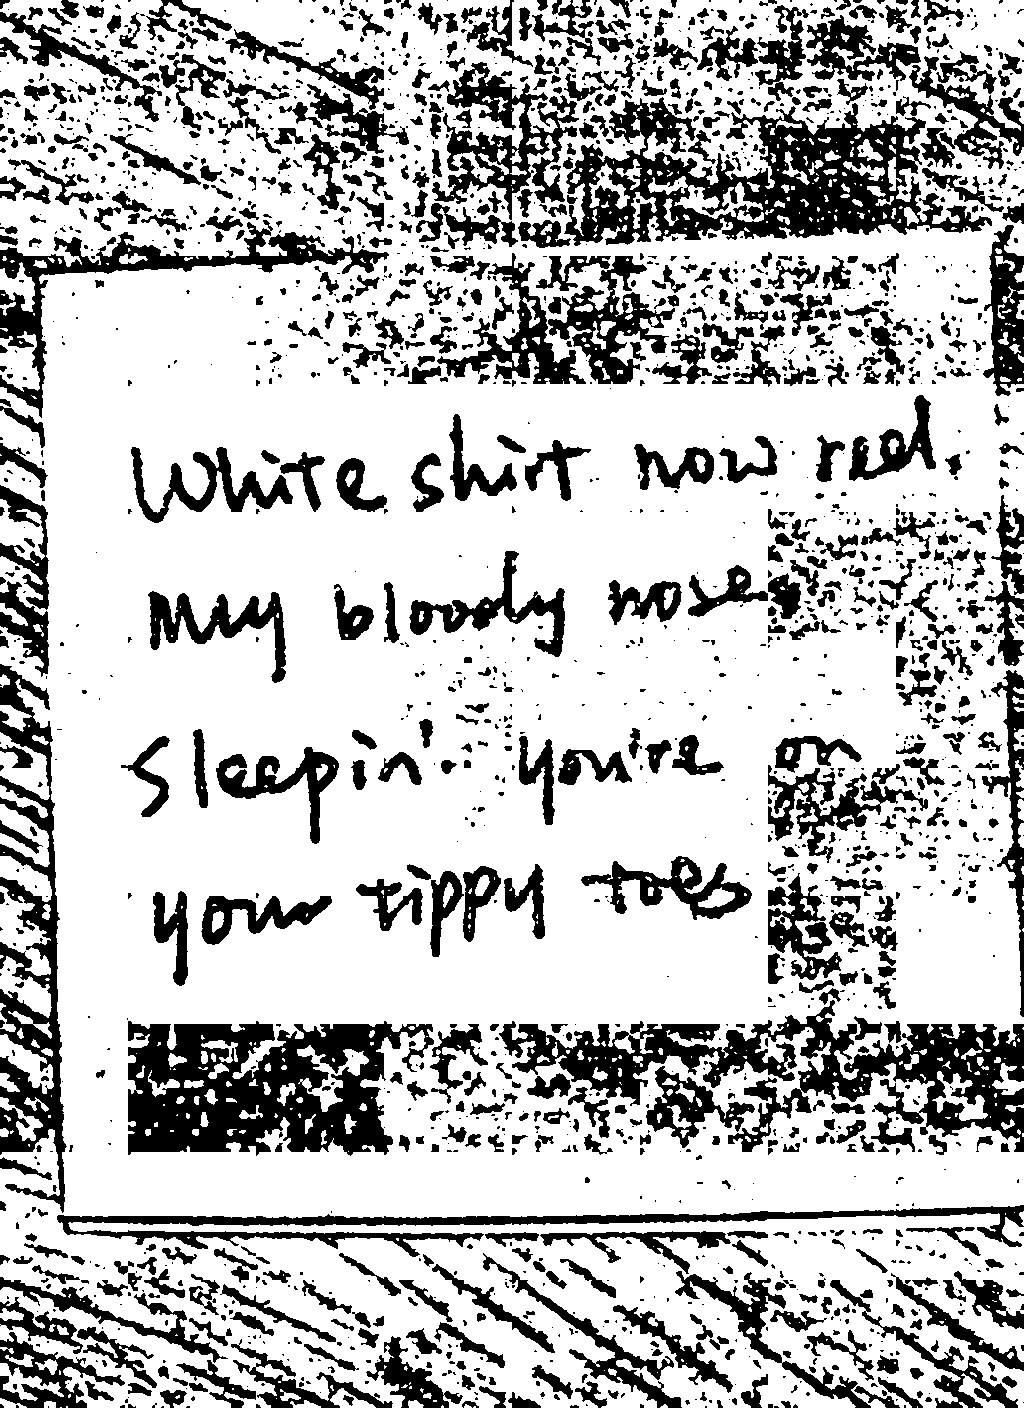 White shirt now red.
My bloody nose,
Sleepin' you're on
your tippy toes